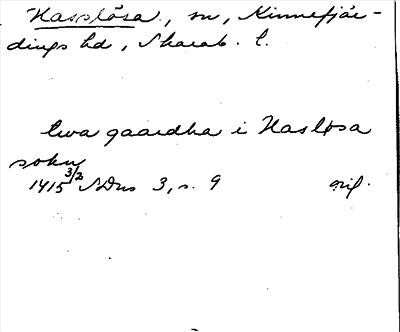 Hasslösa, sn, Kinnefjär-
dings hd, Skarab. l.
twa gaardha i Hasløsa
sokn
1415 3/2 SDns 3, s. 9